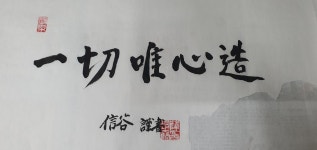 一切唯心造
信谷 謹書